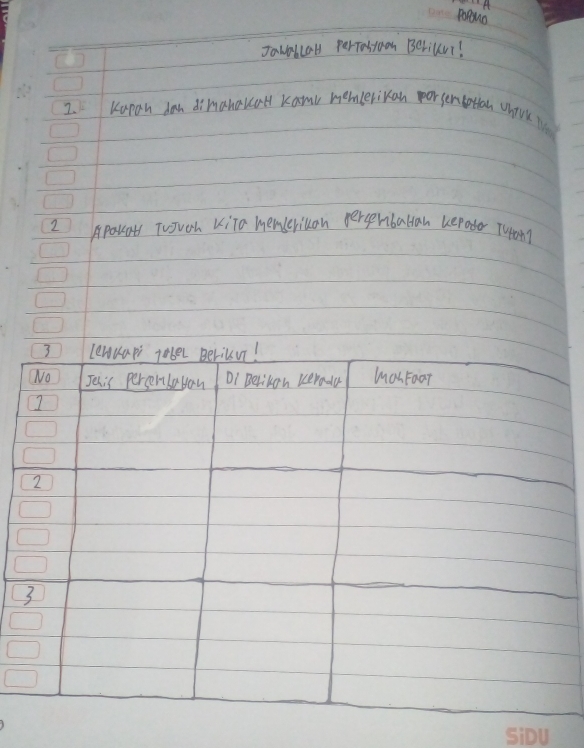 A
PORMO
Jawablah Pertanyaan Berikut!
1. Kapan dan dimanakah kamu memberikan persembahan untuk
2 Apakah tujuan kita memberikan persembahan kepada Tuhan?
3 Lengkapi tabel Berikut!
No Jenis Persembahan Di Berikan Kepada Manfaat
1
2
3
SiDU